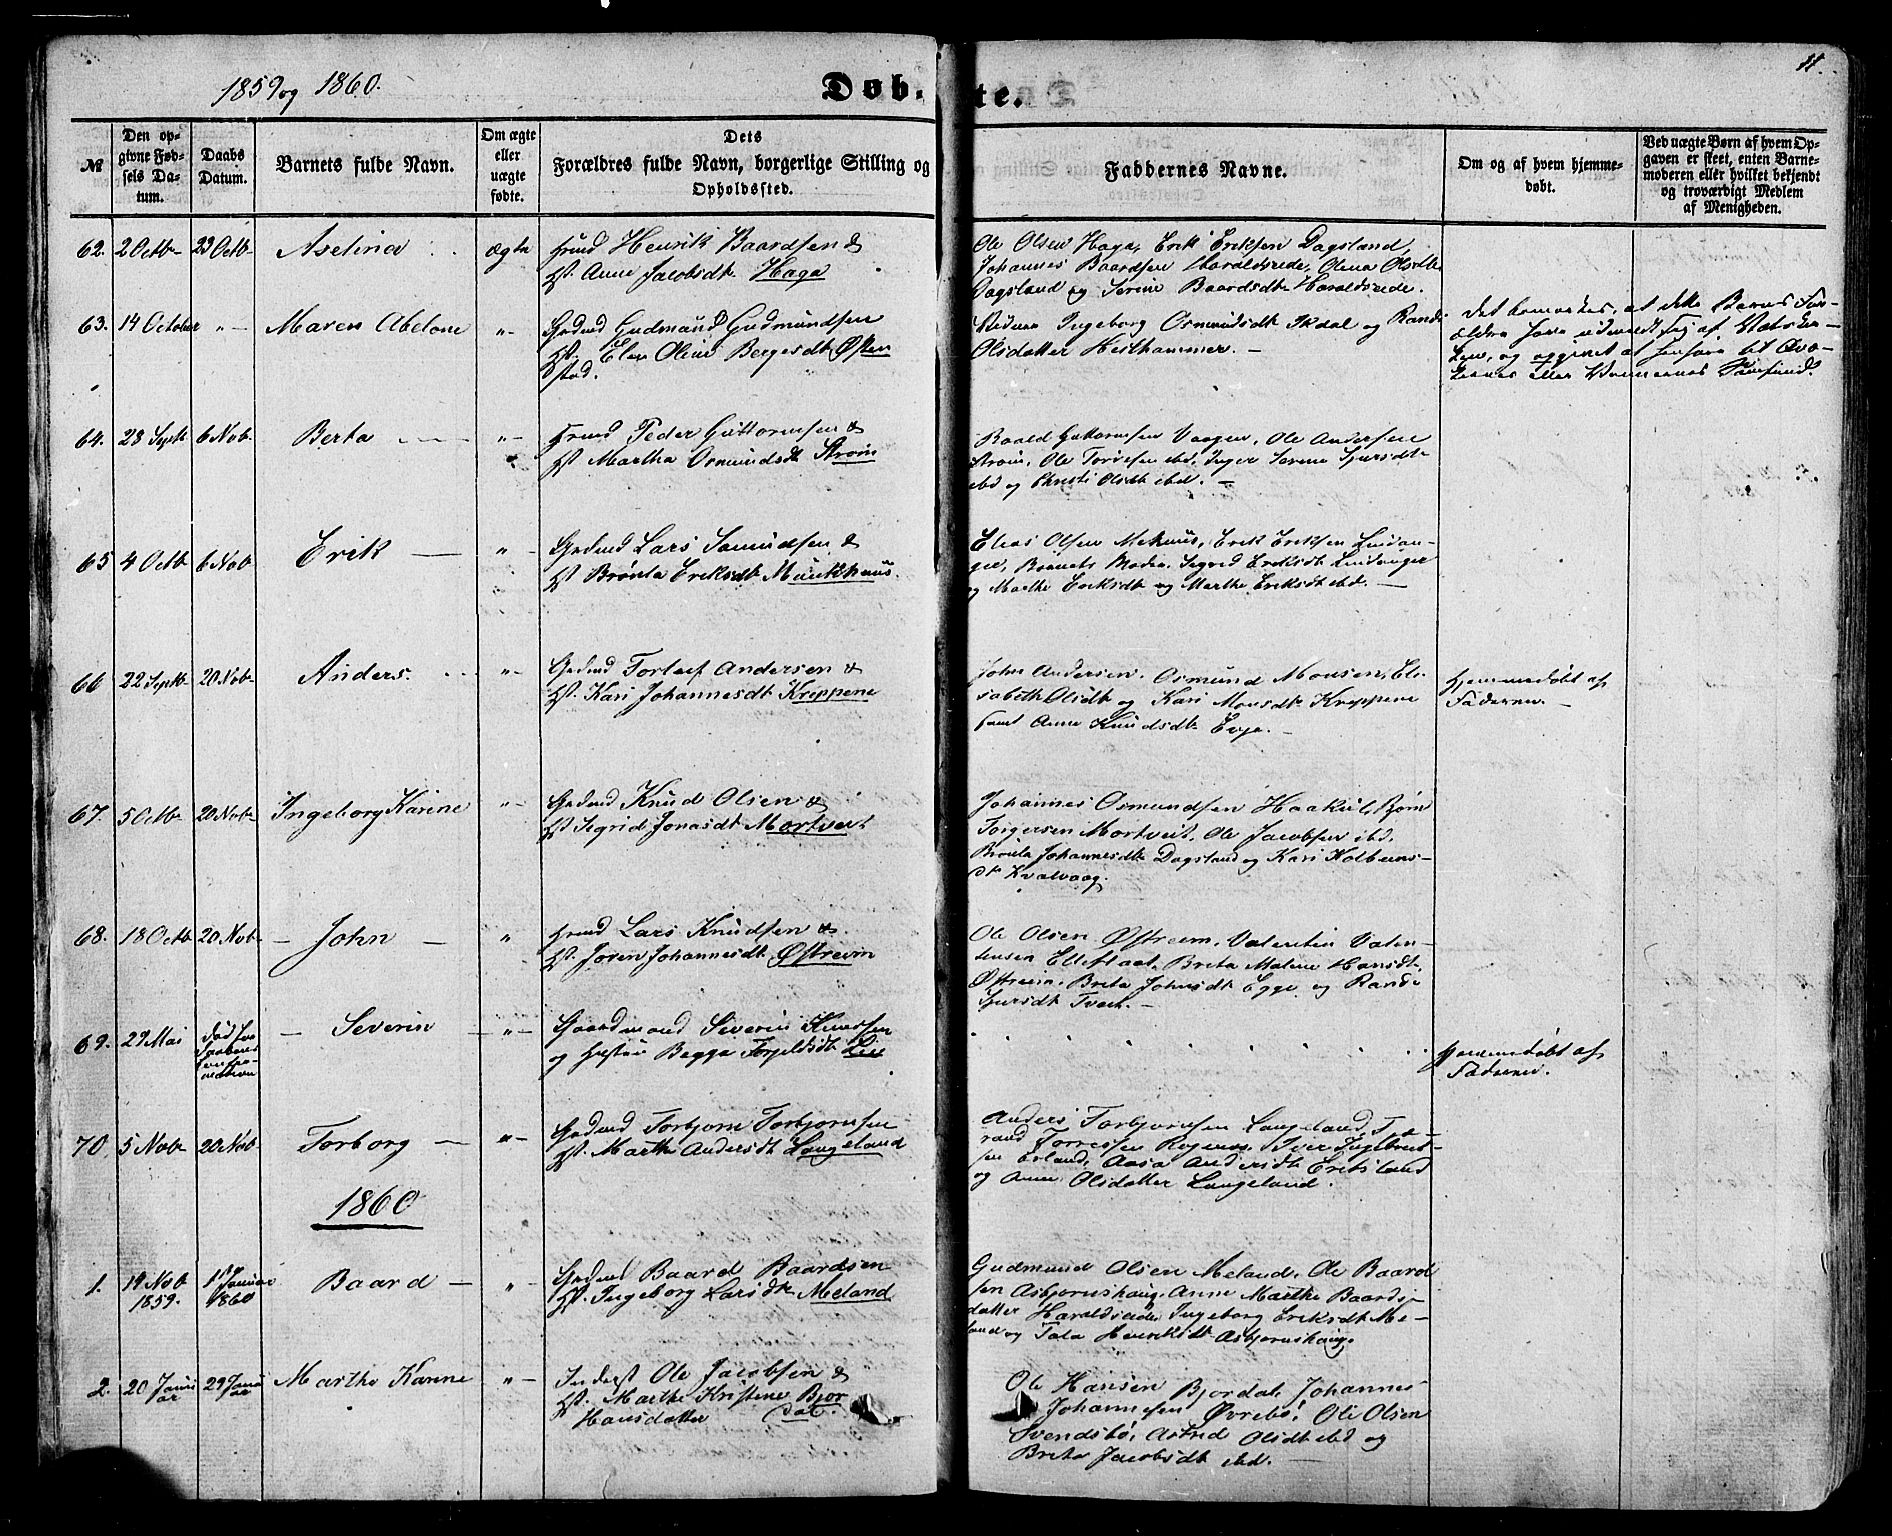 11.
1859 og 1860.
Døb-
te.
№
Den op-
givne Fød-
sels Da-
tum.
Daabs
Datum.
Barnets fulde Navn.
Om ægte
eller
uægte
fødte.
Dets
Forældres fulde Navn, borgerlige Stilling og
Opholdssted.
Faddernes Navne.
Om og af hvem hjemme-
døbt.
Ved uægte Børn af hvem Op-
gaven er skeet, enten Barne-
moderen eller hvilket bekjendt
og troværdigt Medlem
af Menigheden.
62. 2 Octb 23 Octb Aselina ægte
Henrik Baardsen &
Anne Jacobsdt Haga
Ole Olsen Haga, Erik Eriksen Dagsland,
Johannes Baardsen Haraldseide, Olena Olsdtr
Dagsland og Serine Baardsdt Haraldseide.
63. 14 October " - Maren Abelone " -
Gudmund Gudmundsen
Elen Oline Bergesdt Østen
stad.
Ingeborg Osmundsdt Ikdal og Randi
Olsdatter Hesthammer. -
Det bemærkes, at dette Barns For-
ældre have udmeldt sig af Statskir-
ken, og opgivet at henhøre til Qvæ-
kernes eller Vennernes Samfund.
64. 28 Septb 6 Nob. Berta " -
Peder Guttormsen &
Martha Osmundsdt Strøm
Baard Guttormsen Vaagen, Ole Andersen
Strøm, Ole Torresen ibd, Inger Serine Sjursdt
ibd og Christi Olsdt ibd. -
65 4 Octb 6 Nob Erik " -
Lars Samudsen &
Brønla Eriksdt Munkhuus.
Elias Olsen Mehuus, Erik Eriksen Lindan-
ger, Barnets Moder, Sigrid Eriksdt Lindanger
og Marthe Eriksdt og Marthe Eriksdt ibd. -
66 22 Septb 20 Nob Anders. " -
Torleif Andersen &
Kari Johannesdt Kreppene
John Andersen, Osmund Monsen, Eli-
sabeth Olsdt og Kari Monsdt Kreppene
samt Anne Knudsdt Evje. -
Hjemmedøbt af
Faderen. -
67. 5 Octb 20 Nob Ingeborg Karine " -
Knud Olsen &
Sigrid Jonasdt Mortveit
Johannes Osmundsen Haakuil, Bjørn
Torgersen Mortveit, Ole Jacobsen ibd,
Brønla Johannesdt Dagsland og Kari Kolbeins-
dt Kvalvaag.
68. 18 Octb 20 Nob John "
Lars Knudsen &
Joren Johannesdt Østreim
Ole Olsen Østreim, Valentin Valen-
tinsen Eltestaat, Brita Malene Hansdt
Østreim, Brita Johnsdt Egge og Randi
Sjursdt Tveit. -
69. 29 Mai Død før
Severin " -
Gaardmand Severin Knudsen
og Hustru Begga Torjeldsdt Lie
Hjemmedøbt af
Faderen.
70. 5 Nob 20 Nob Torborg " -
Torbjorn Torbjornsen
Marthe Andersdt Langeland
Anders Torbjornsen Langeland, T-
rand Torresen Rognaas, Iver Ingebret-
sen Erland, Aasa Andersdt Eriksland
og Anne Olsdatter Langeland.
1860
1. 19 Nob
1859. 1 Januar
1860 Baard "
Baard Baardsen
Ingeborg Larsdt Meland
Gudmund Olsen Meland, Ole Baard
sen Asbjørnshaug, Anne Marthe Baards-
datter Haraldseide, Ingeborg Eriksdt Me-
land og Tala Henriksdt Asbjørnshaug.
2. 20 Janu
ar 29 Janu
ar Marthe Karine " -
Inderst Ole Jacobsen &
Marthe Kristene Bjor
Hansdatter dal.
Ole Hansen Bjordal, Johannes
Johannesen Øvrebø, Ole Olsen
Svendsbø, Astrid Olsdt ibd og
Brita Jacobsdt ibd. -